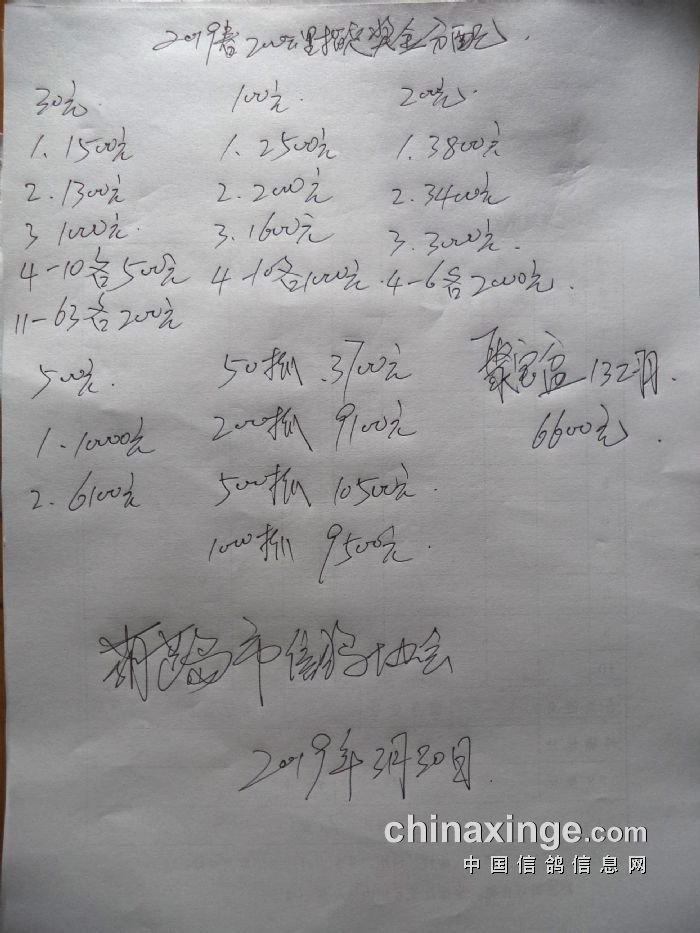 2019春200公里指定奖金分配
30元 100元 200元
1. 1500元 1. 2500元 1. 3800元
2. 1300元 2. 2000元 2. 3400元
3 1000元. 3. 1600元 3. 3000元.
4-10名500元 4-10名1000元. 4-6名2000元.
11-63名200元
500元. 50抓 3700元 聚宝盆132羽.
1. 10000元 200抓 9100元 6600元.
2. 6100元 500抓 10500元.
1000抓 9500元.
葫芦岛市信鸽协会
2019年3月30日.
chinaxinge.com
中国信鸽信息网